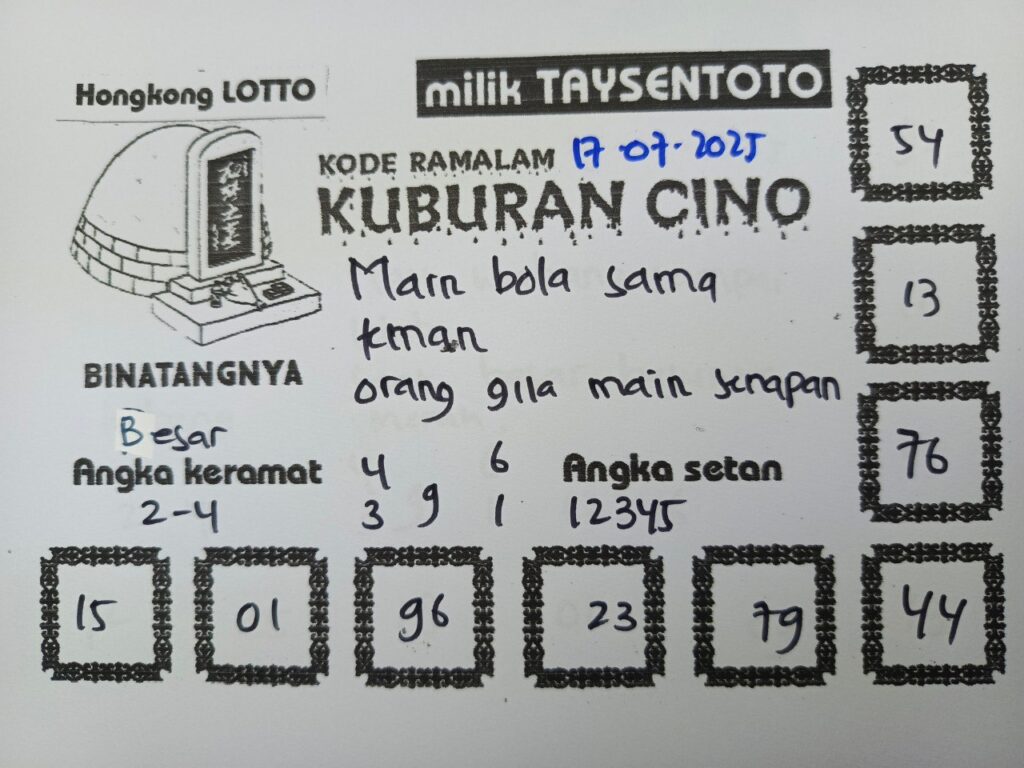 Hongkong LOTTO
milik TAYSENTOTO
KODE RAMALAM 17-07-2025
KUBURAN CINO
Main bola sama
teman
orang gila main senapan
BINATANGNYA
Besar
Angka keramat
2-4
4 6
3 9 1
Angka setan
12345
54
13
76
15 01 96 23 79 44